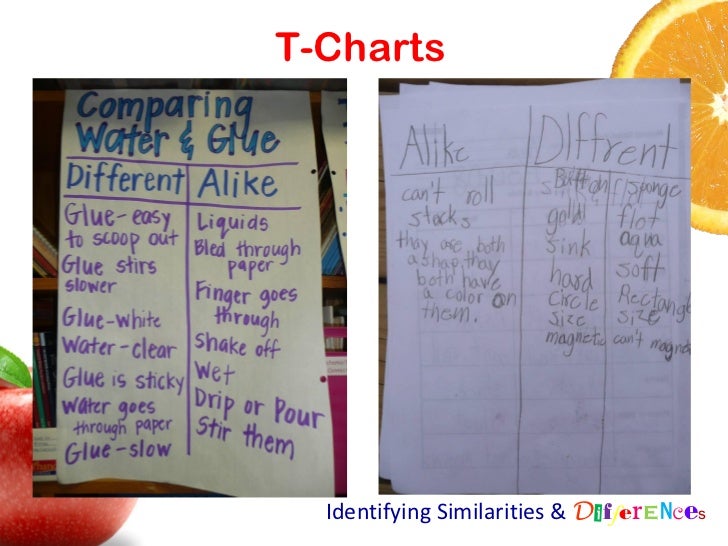 T-Charts
Comparing
Water & Glue
Different
Glue-easy
to scoop out
Glue stirs
slower
Glue-white
Water-clear
Glue is sticky
Water goes
through paper
Glue-slow
Alike
Liquids
Bled through
paper
Finger goes
through
Shake off
Wet
Drip or Pour
Stir them
Alike
can't roll
stacks
thay are both
a shap, thay
both have
a color on
them.
Diffrent
Button
gold
sink
hard
Circle
size
magnetic
sponge
flot
aqua
soft
Rectangle
size
can't magnetic
Identifying Similarities & Differences